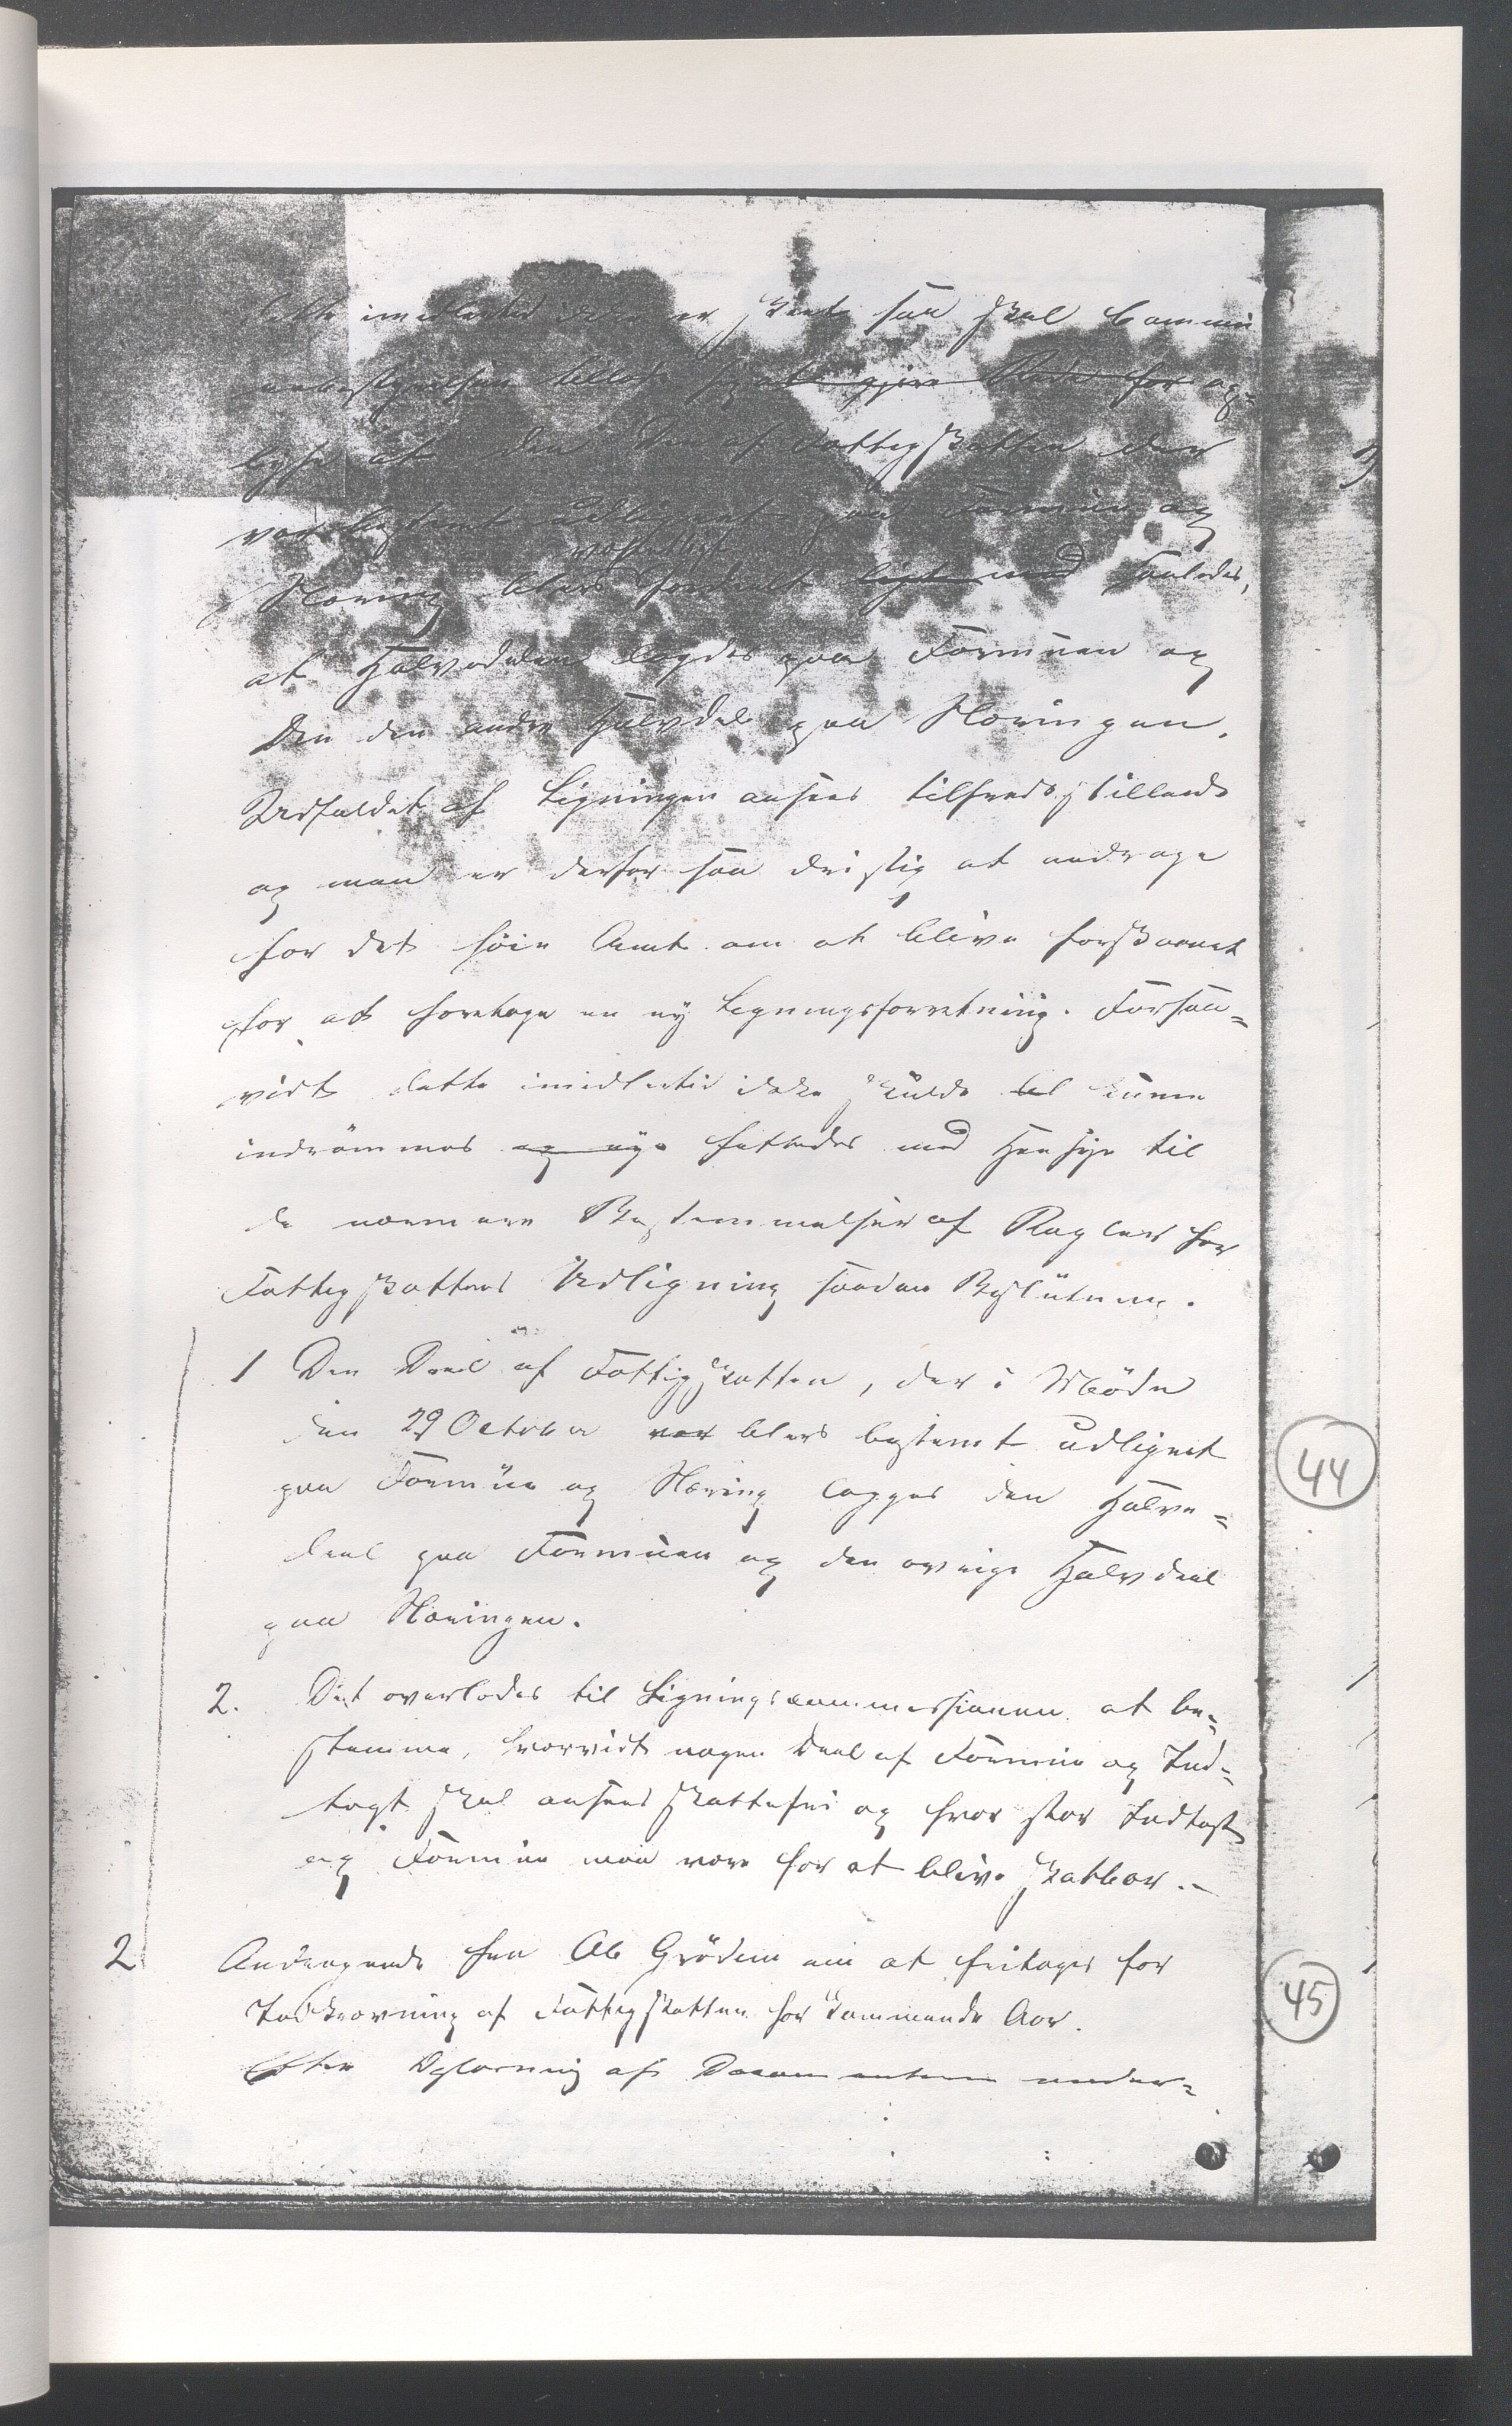 dette imidlertid ikke er skeet saa skal Commu
nebestyrelsen tillade sig at gjøre Rede for op=
lyse at den Deel af Fattigskatten der
var bestemt udlignet paa Formue og
væsentligt
Næring blev fordeelt ligesom saaledes,
at Halvdelen lagdes paa Formuen og
Den den anden Halvdel paa Næringen.
Udfaldet af Ligningen ansees tilfredsstillende
og man er derfor saa dristig at andrage
for det høie Amt om at blive forskaanet
for at foretage en ny Ligningsforretning. Forsaa=
vidt dette imidlertid ikke skulde til kunne
indrömmes og nye fattedes med Hensyn til
de nærmere Bestemmelser af Regler for
Fattigskattens Udligning saadan Beslutning.
1 Den Deel af Fattigskatten, der i Møde
den 29 October var blev bestemt udlignet
paa Formue og Næring lægges den Halve=
deel paa Formuen og den øvrige Halvdeel
paa Næringen.
2. Det overlodes til Ligningscommissionen at be=
stemme, hvorvidt nogen Deel af Formue og Ind=
tægt skal ansees skattefri og hvor stor Indtægt
og Formue maa være for at blive skatbar.-
2 Andragende fra Ole Grödem om at fritages for
Indkrævning af Fattigskatten for kommende Aar.
Efter Oplæsning af Documenterne under=
44
45